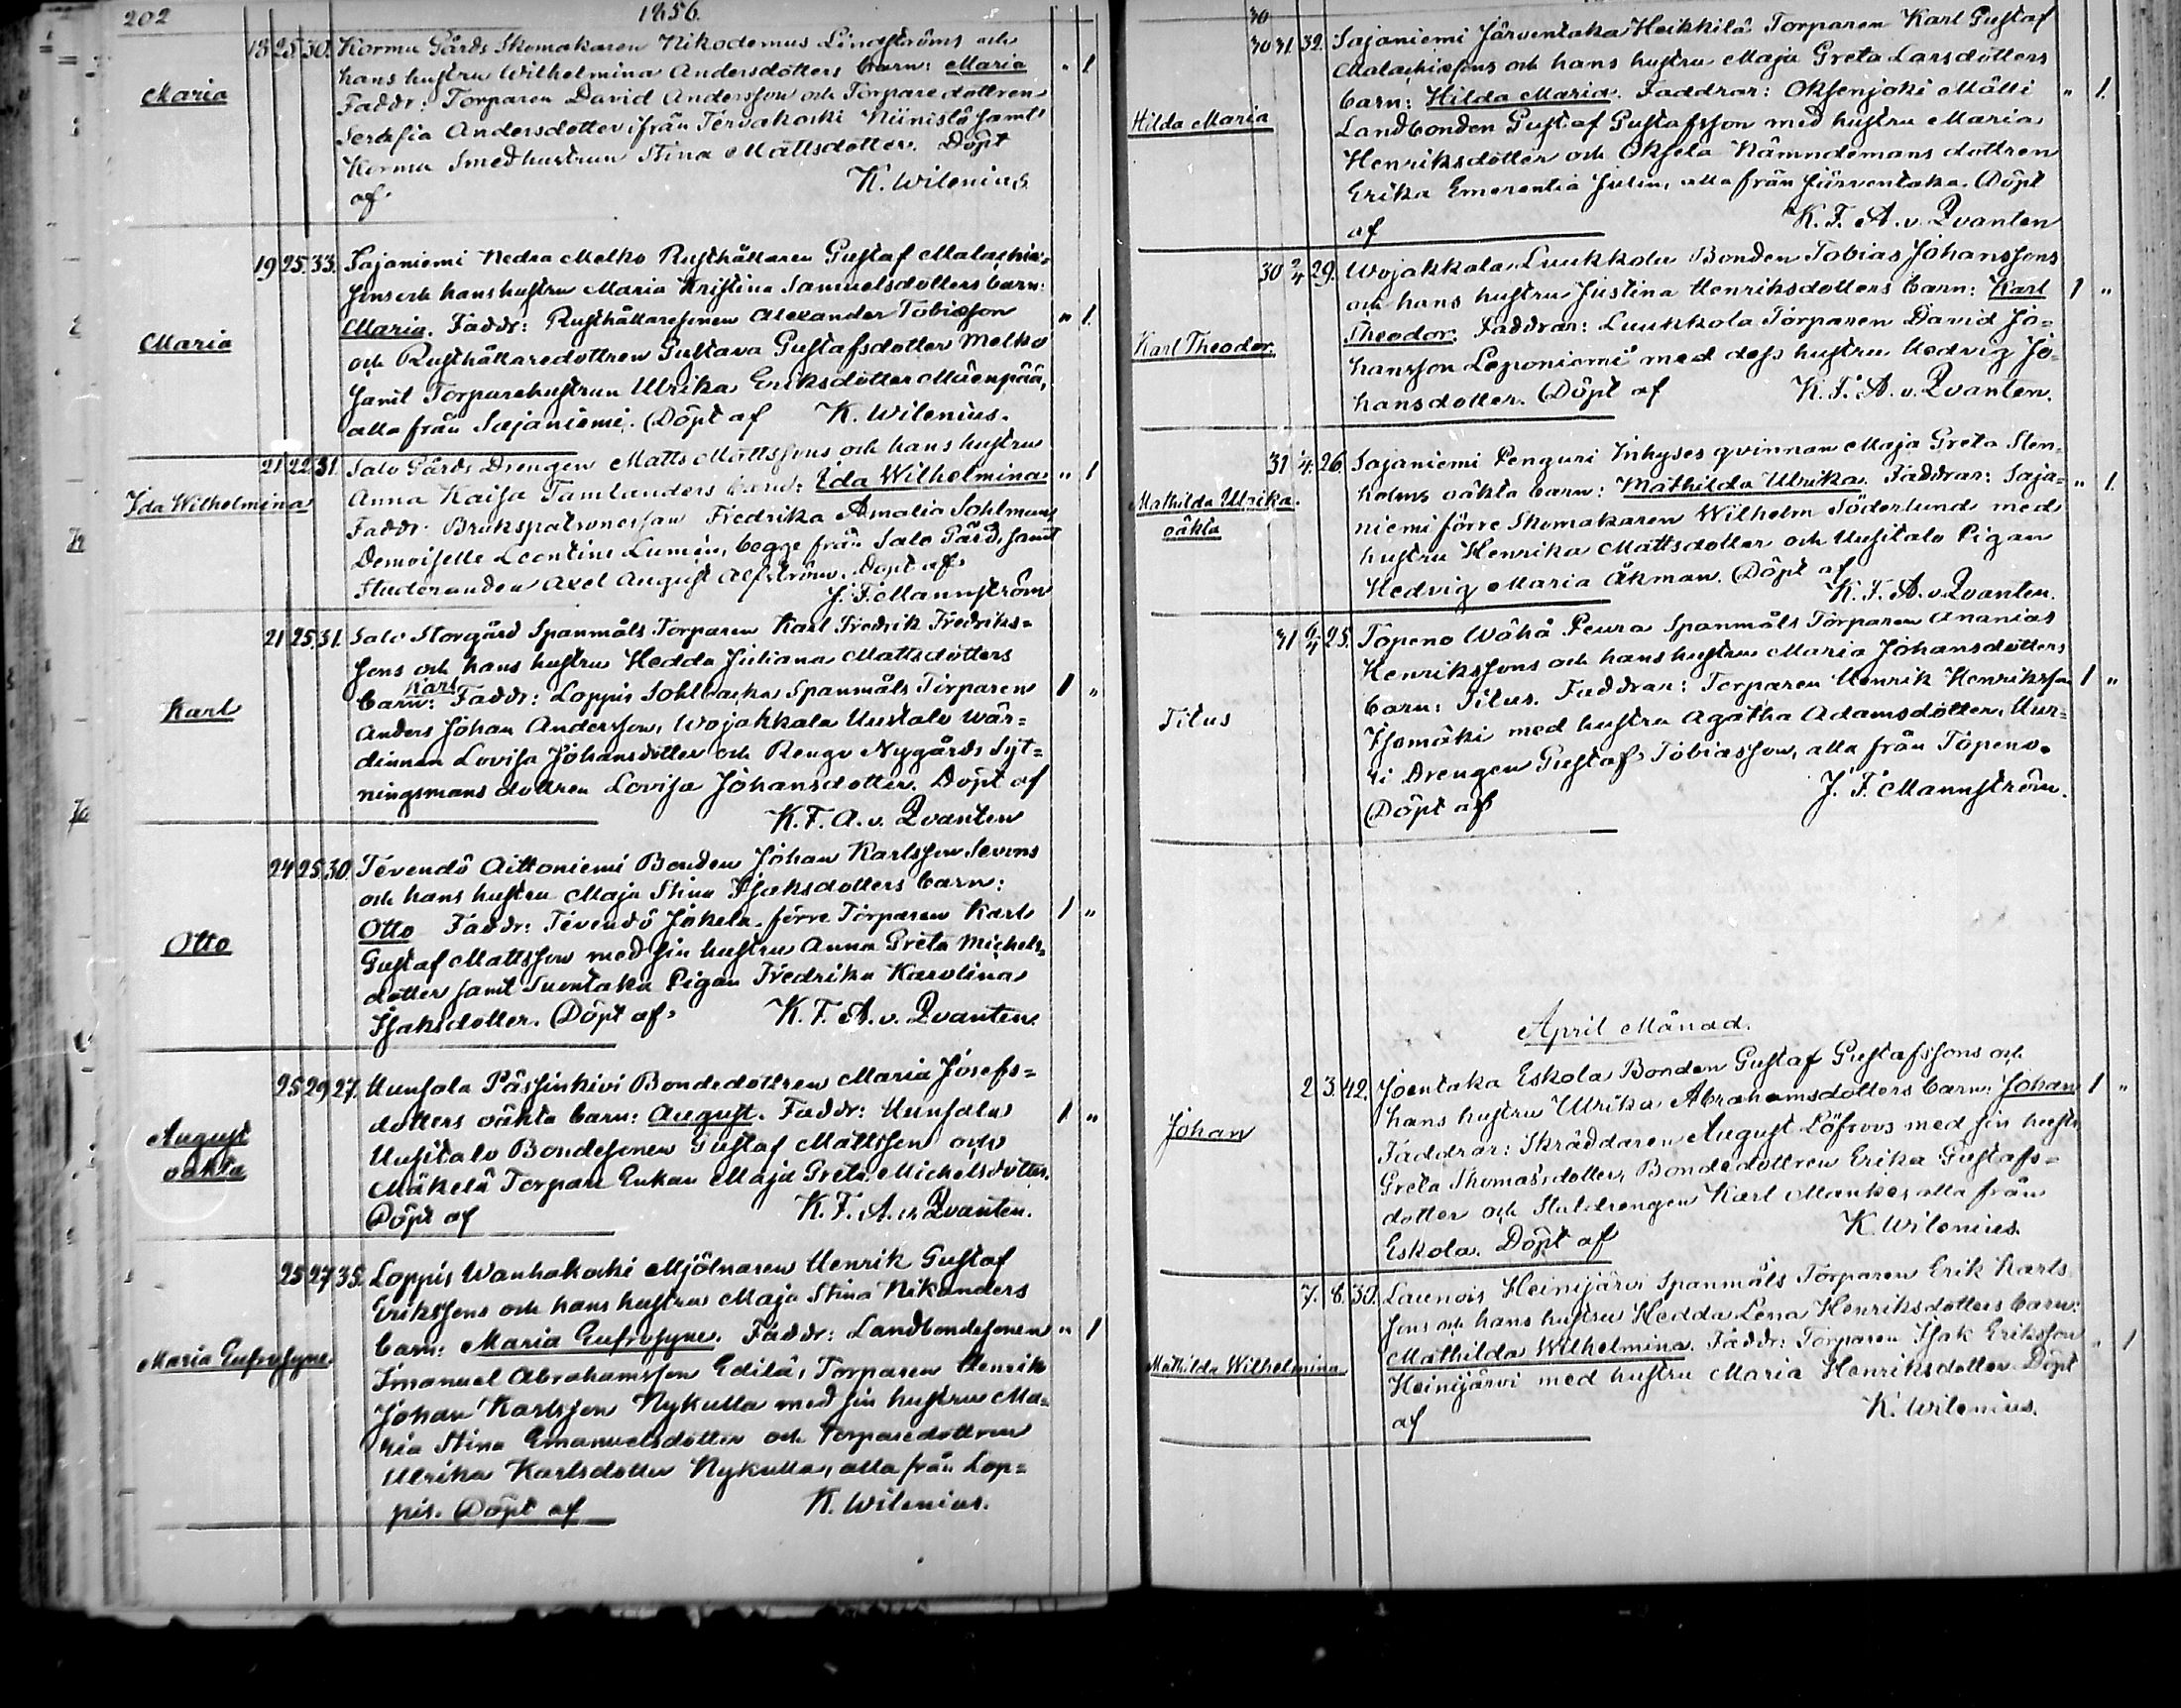 202
1856.
Maria
18 25 30. Korma Gårds Skomakaren Nikodemus Lindströms och
hans hustru Wilhelmina Andersdotters barn: Maria " 1
Faddr: Torparen David Andersson och Torparedottren
Serafia Andersdotter ifrån Tervakoski Niinistö samt
Korma Smedhustrun Stina Mattsdotter. Döpt
af K. Wilenius.
Maria
19 25. 33. Sajaniemi Nedra Melko Rusthållaren Gustaf Malachia-
sons och hans hustru Maria Kristina Samuelsdotters barn:
Maria. Faddr: Rusthållaresonen Alexander Tobiasson " 1.
och Rusthållaredottren Gustava Gustafsdotter Melko
samt Torparehustrun Ulrika Eriksdotter Mäenpää,
alla från Sajaniemi. Döpt af K. Wilenius.
Ida Wilhelmina
21 22. 31. Salo Gårds Drengen Matts Mattssons och hans hustru
Anna Kaisa Tamlanders barn: Ida Wilhelmina " 1
Faddr: Brukspatronessan Fredrika Amalia Sohlman
Demoiselle Leontine Lumén, begge från Salo Gård, samt
Studeranden Axel August Alfström. Döpt af
J. F. Mannström
Karl
21 25. 31. Salo Storgård Spanmåls Torparen Karl Fredrik Fredriks=
sons och hans hustru Hedda Juliana Mattsdotters
barn: Karl Faddr: Loppis Sohlbacka Spanmåls Torparen 1 "
Anders Johan Andersson, Wojakkala Uusitalo Wär=
dinnan Lovisa Johansdotter och Renge Nygårds Syt=
ningsmans dottren Lovisa Johansdotter. Döpt af
K. F. A. v. Qvanten
Otto
24 25 30. Tevendö Aittoniemi Bonden Johan Karlsson Severs
och hans hustru Maja Stina Isaksdotters barn:
Otto Faddr: Tevendö Jokela förre Torparen Karl 1 "
Gustaf Mattsson med sin hustru Anna Greta Michels-
dotter samt Suontaka Pigan Fredrika Karolina
Isaksdotter. Döpt af K. F. A. v. Qvanten.
August
oäkta
25 29 27. Uunsala Pässinkivi Bondedottren Maria Josefs=
dotters oäkta barn: August. Faddr: Uunsala 1 "
Uusitalo Bondesonen Gustaf Mattsson och
Mäkelä Torpare Enkan Maja Greta Michelsdotter.
Döpt af K. F. A. v. Qvanten.
Maria Eufrosyne
25 27 35. Loppis Wanhakoski Mjölnaren Henrik Gustaf
Erikssons och hans hustru Maja Stina Nikanders
barn: Maria Eufrosyne. Faddr: Landbondesonen " 1
Imanuel Abrahamsson Edilä, Torparen Henrik
Johan Karlsson Nykulla med sin hustru Ma=
ria Stina Emanuelsdotter och Torparedottren
Ulrika Karlsdotter Nykulla, alla från Lop=
pis. Döpt af K. Wilenius.
30
Hilda Maria
30 31. 32. Sajaniemi Järventaka Heikkilä Torparen Karl Gustaf
Malachiasons och hans hustru Maja Greta Larsdotters
barn: Hilda Maria. Faddrar: Oksenjoki Mälli " 1.
Landbonden Gustaf Gustafsson med hustru Maria
Henriksdotter och Oksela Nämndemans dottren
Erika Emerentia Julin, alla från Järventaka. Döpt
af K. F. A. v. Qvanten
Karl Theodor.
30 2/4 29. Wojakkala Luukkola Bonden Tobias Johanssons
och hans hustru Justina Henriksdotters barn: Karl 1 "
Theodor. Faddrar: Luukkola Torparen David Jo=
hansson Leponiemi med dess hustru Hedvig Jo=
hansdotter. Döpt af K. F. A. v. Qvanten.
Mathilda Ulrika.
oäkta
31 /4. 26. Sajaniemi Penguri Inhyses qvinnan Maja Greta Sten-
holms oäkta barn: Mathilda Ulrika. Faddrar: Saja= " 1.
niemi förre Skomakaren Wilhelm Söderlund med
hustru Henrika Mattsdotter och Uusitalo Pigan
Hedvig Maria Åkman. Döpt af
K. F. A. v. Qvanten.
Titus
31 6/4 25. Topeno Wähä Peura Spanmåls Torparen Ananias
Henrikssons och hans hustru Maria Johansdotters
barn: Titus. Faddrar: Torparen Henrik Henriksson 1 "
Isomäki med hustru Agatha Adamsdotter, Uur=
ri Drengen Gustaf Tobiasson, alla från Topeno.
Döpt af J. F. Mannström.
April Månad.
Johan
2 3. 42. Joentaka Eskola Bonden Gustaf Gustafssons och
hans hustru Ulrika Abrahamsdotters barn: Johan 1 "
Faddrar: Skräddaren August Löfroos med sin hustr
Greta Thomasdotter, Bondedottren Erika Gustafs=
dotter och Stalldrengen Karl Manker alla från
Eskola. Döpt af K. Wilenius.
Mathilda Wilhelmina
7. 8. 30. Launois Heinijärvi Spanmåls Torparen Erik Karls
sons och hans hustru Hedda Lena Henriksdotters barn:
Mathilda Wilhelmina. Faddr: Torparen Isak Eriksson " 1
Heinijärvi med hustru Maria Henriksdotter. Döpt
af K. Wilenius.